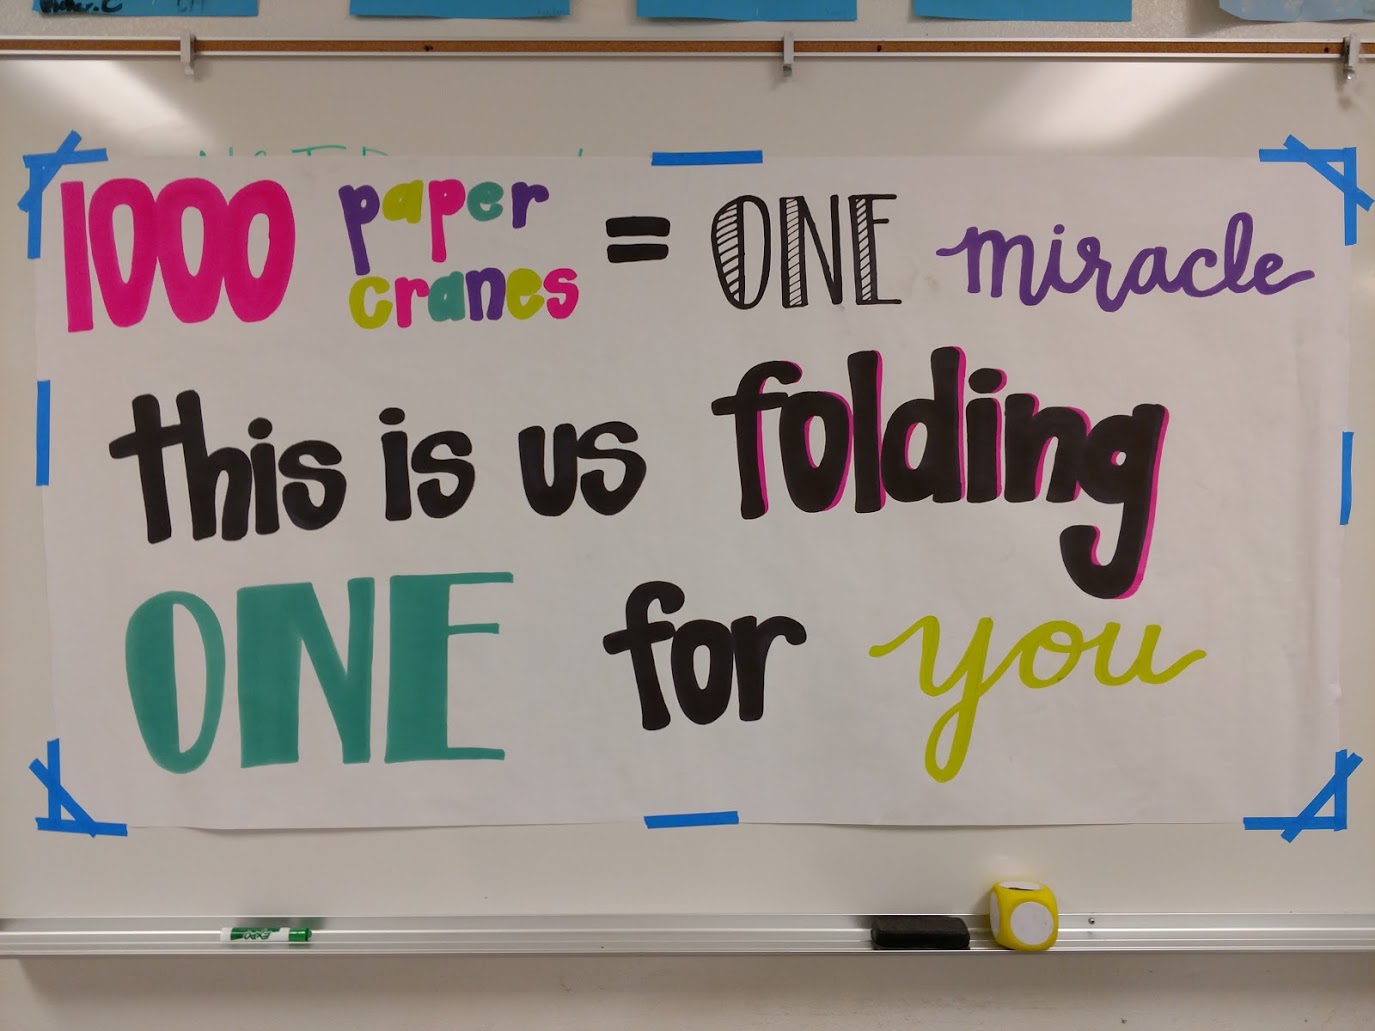 1000 paper cranes = ONE miracle
this is us folding
ONE for you
EXPO